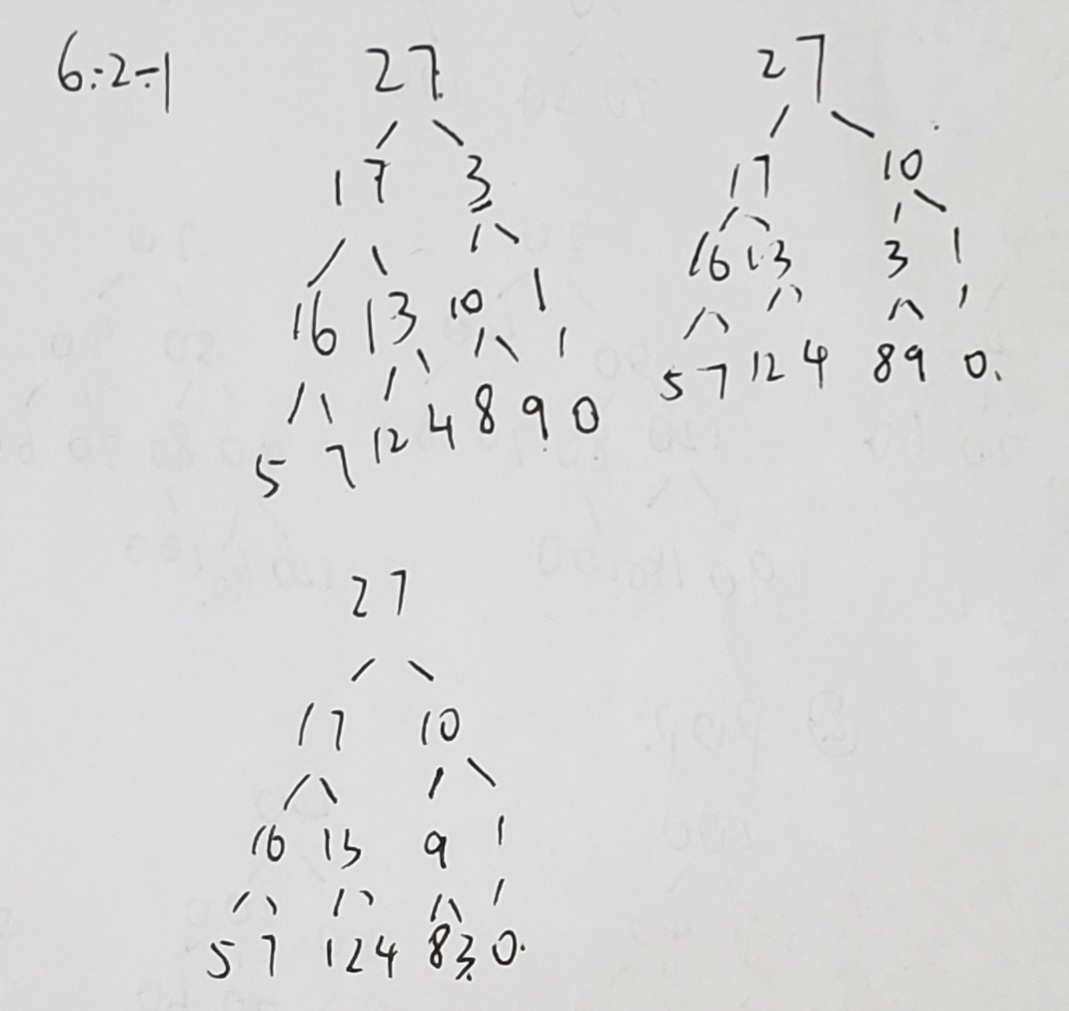 6.2-1
27
17 3
16 13 10 1
5 7 12 4 8 9 0
27
17 10
16 13 3 1
5 7 12 4 8 9 0.
27
17 10
16 13 9 1
5 7 12 4 8 3 0.